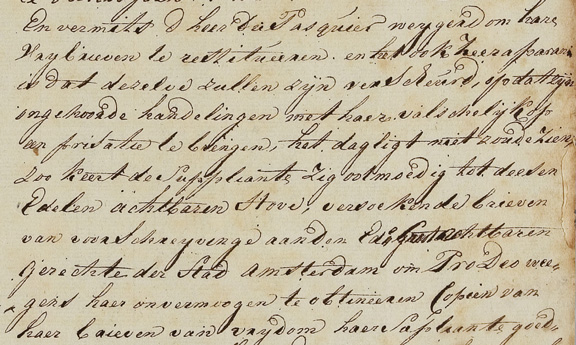 En vermits d'heer Du Pasquier weygerd om haer
Vrybrieven te restitueeren. en het ook zeer apparent
is dat dezelve zullen zyn verscheurd, opdat zyn
ongehoorde handelingen met haer valschelyk op
een prisatie te brengen, het dagligt niet zoude zien
Zoo keert de Suppliante zig ootmoedig tot deesen
Edelen achtbaren Hove, versoekende brieven
van voorschryvinge aan den Ed: achtbaren
Gerechte der Stad Amsterdam om Pro Deo wee-
gens haer onvermoogen te obtineeren Copien van
haer brieven van vrydom haer Suppliante goed-